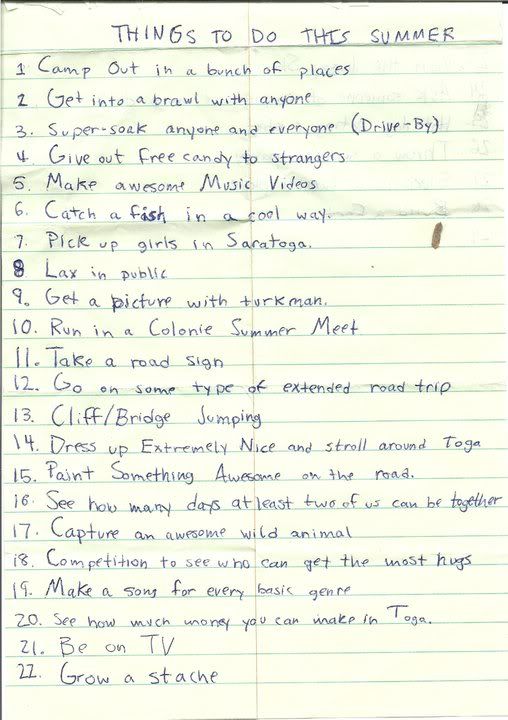 THINGS TO DO THIS SUMMER
1 Camp Out in a bunch of places
2 Get into a brawl with anyone
3. Super-soak anyone and everyone (Drive-By)
4. Give out free candy to strangers
5. Make awesome Music Videos
6. Catch a fish in a cool way.
7. Pick up girls in Saratoga.
8 Lax in public
9. Get a picture with turkman.
10. Run in a Colonie Summer Meet
11. Take a road sign
12. Go on some type of extended road trip
13. Cliff/Bridge Jumping
14. Dress up Extremely Nice and stroll around Toga
15. Paint Something Awesome on the road.
16. See how many days at least two of us can be together
17. Capture an awesome wild animal
18. Competition to see who can get the most hugs
19. Make a song for every basic genre
20. See how much money you can make in Toga.
21. Be on TV
22. Grow a stache